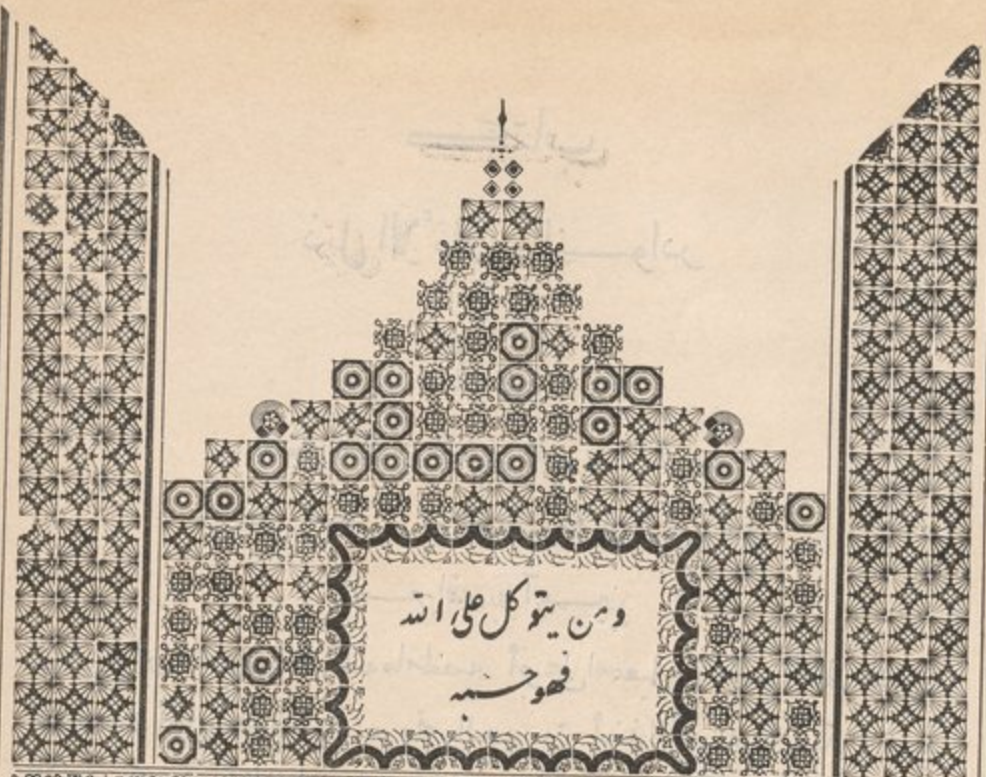 ومن يتوكل على الله
فهو حسبه